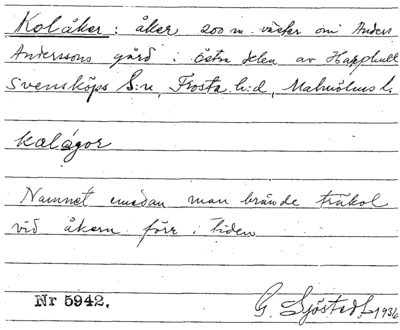 Kolåker: åker, 200 m. väster om Anders
Anderssons gård i östra delen av Happhult
Svensköps S:n, Frosta h:d, Malmöhus l.
kolågor
Namnet emedan man brände träkol
vid åkern förr i tiden
Nr 5942.
G. Sjöstedt 1936